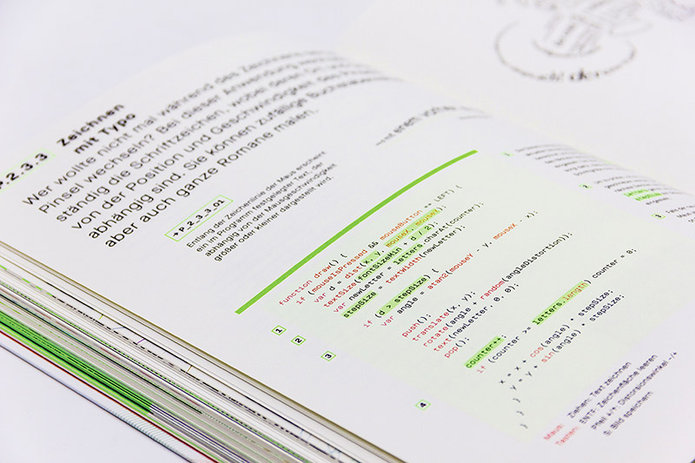 P.2.3.3 Zeichnen
mit Typo
Wer wollte nicht mal während des Zeichnens
Pinsel wechseln? Bei dieser Anwendung
ständig die Schriftzeichen, wobei deren
von der Position und Geschwindigkeit
abhängig sind. Sie können zufällige
aber auch ganze Romane malen.
→P.2.3.3.01
Entlang der Zeichenlinie der Maus erscheint
ein im Programm festgelegter Text, der
abhängig von der Mausgeschwindigkeit
größer oder kleiner dargestellt wird.
function draw() {
if (mouseIsPressed && mouseButton == LEFT) {
var d = dist(x, y, mouseX, mouseY);
textSize(fontSizeMin + d / 2);
var newLetter = letters.charAt(counter);
stepSize = textWidth(newLetter);
if (d > stepSize) {
var angle = atan2(mouseY - y, mouseX - x);
push();
translate(x, y);
rotate(angle + random(angleDistortion));
text(newLetter, 0, 0);
pop();
counter++;
if (counter >= letters.length) counter = 0;
x = x + cos(angle) * stepSize;
y = y + sin(angle) * stepSize;
}
}
}
1
2
3
4
Maus: Ziehen: Text zeichnen
Tasten: ENTF: Zeichenfläche leeren
Pfeil ↑/↓: Distorsionswinkel -/+
S: Bild speichern